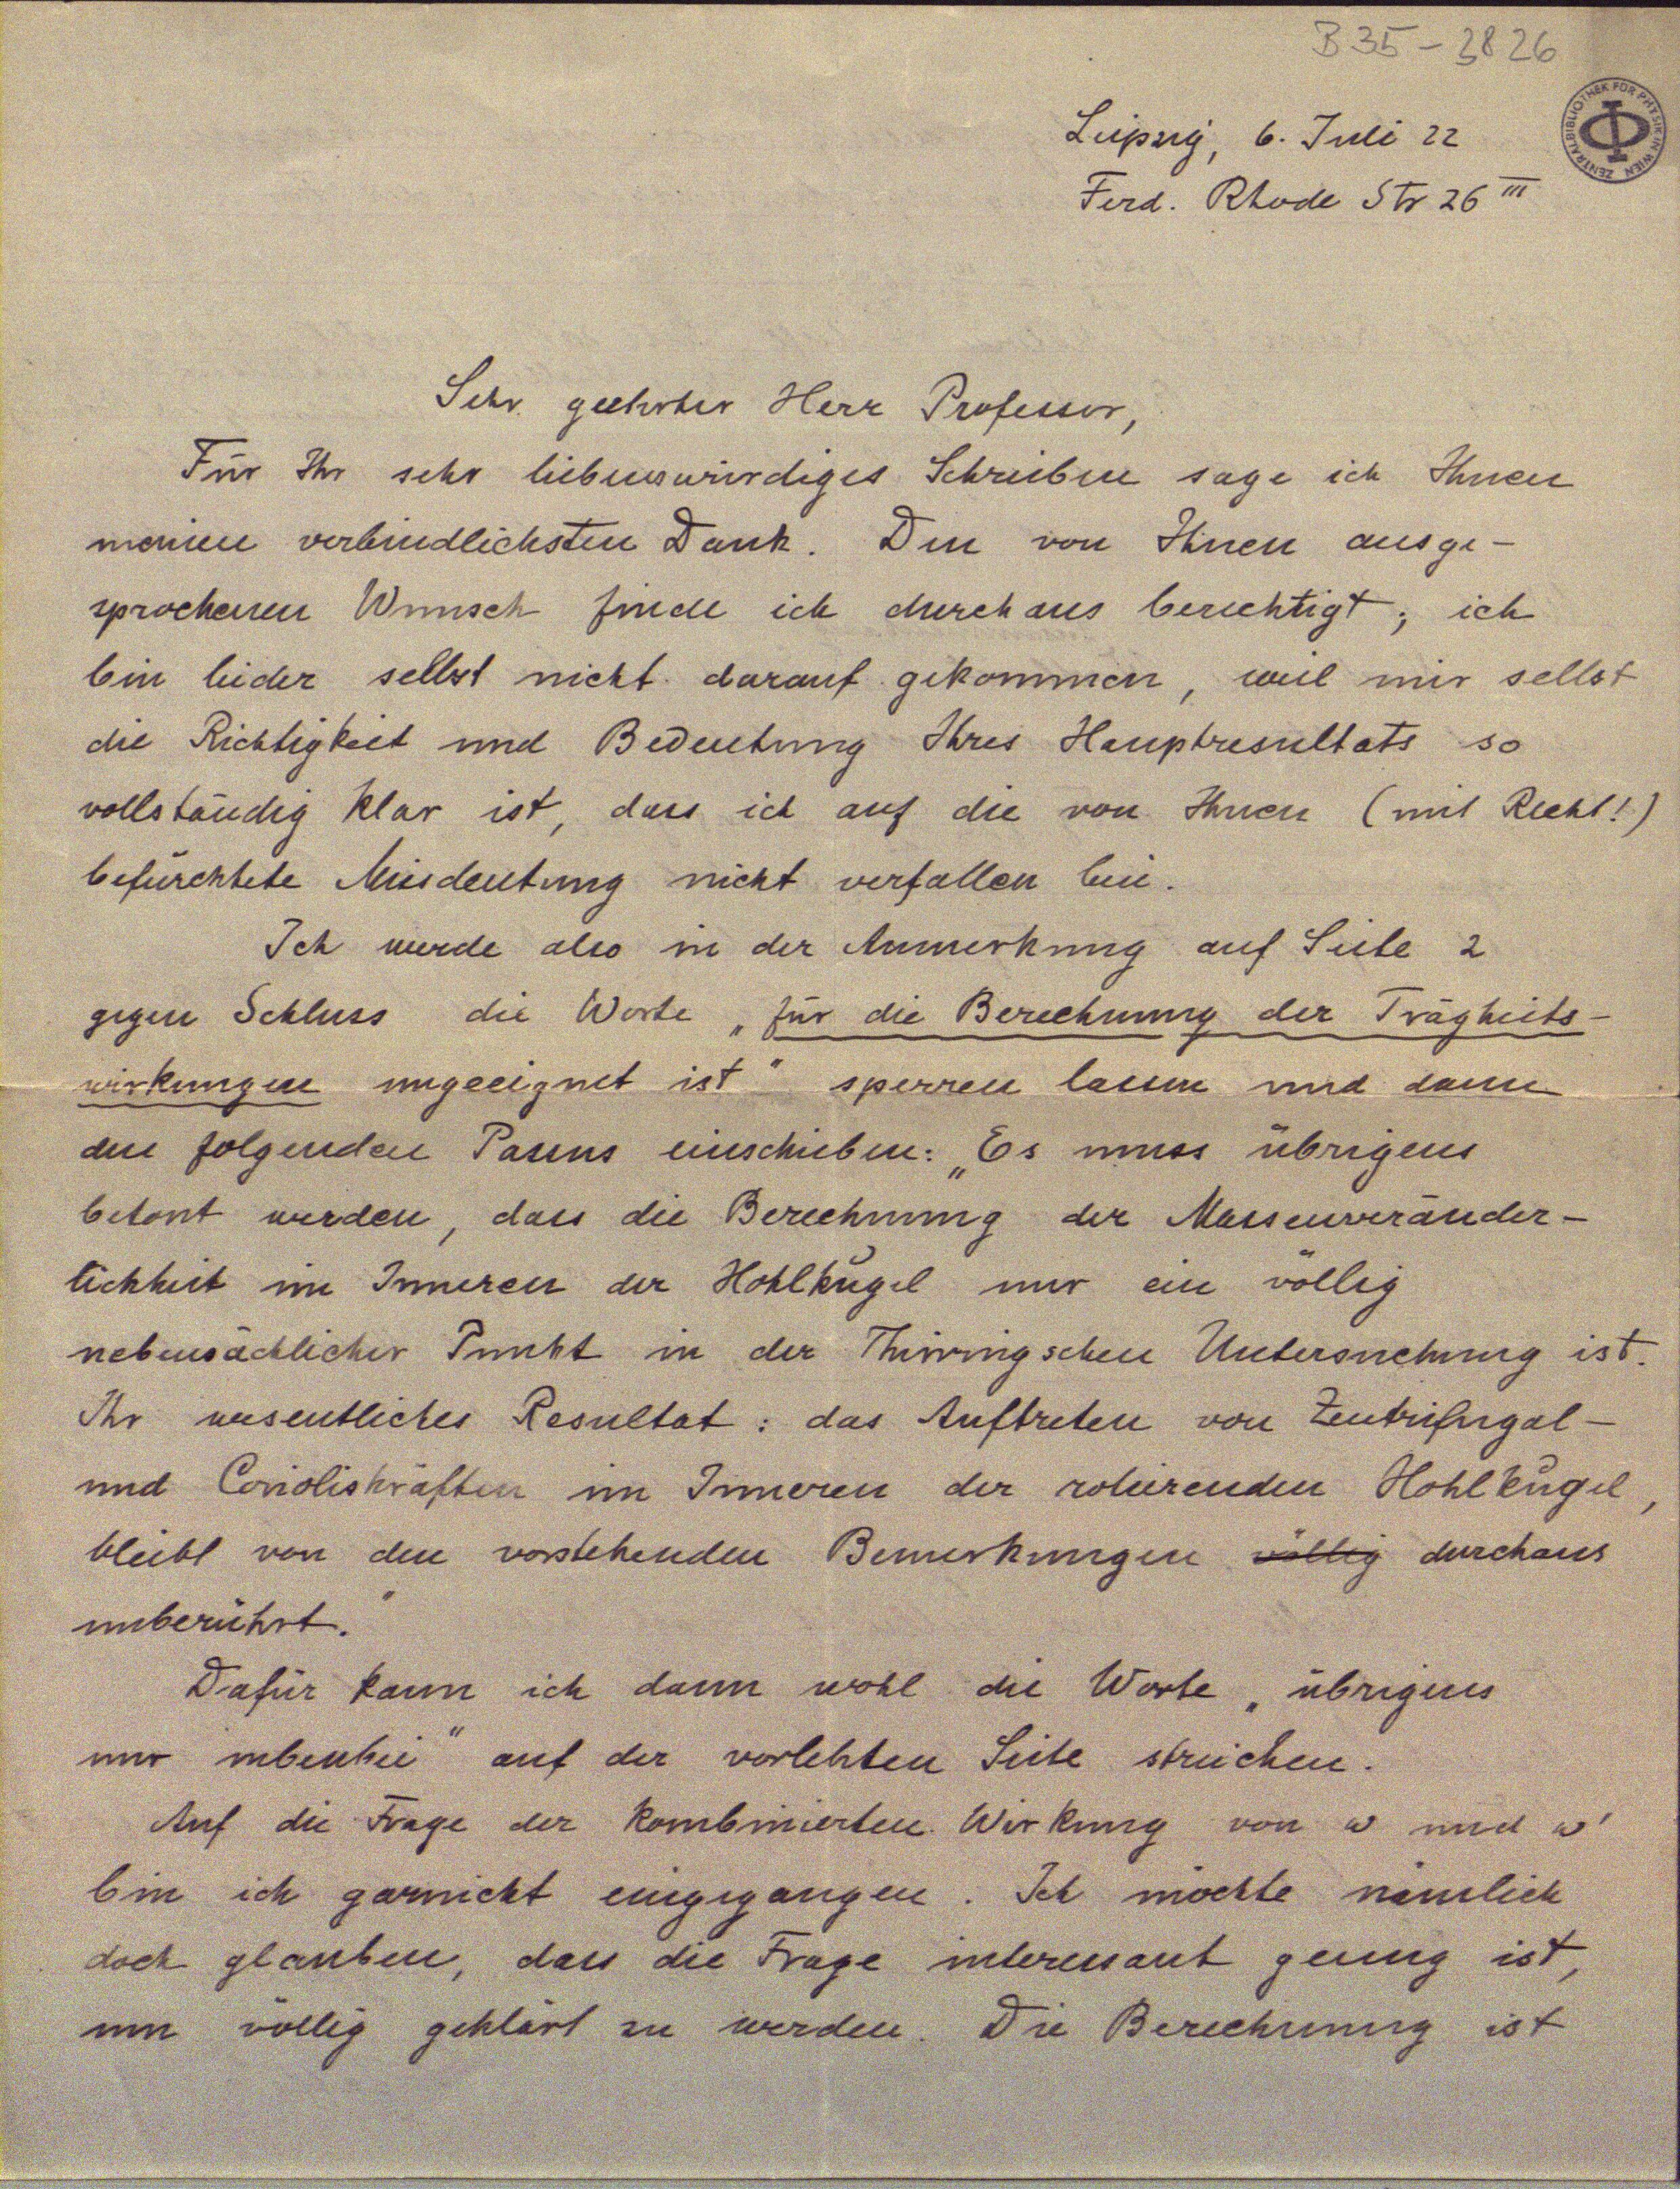 B35-3826
ZENTRALBIBLIOTHEK FÜR PHYSIK IN WIEN
Leipzig, 6. Juli 22
Ferd. Rhode Str 26 III
Sehr geehrter Herr Professor,
Für Ihr sehr liebenswürdiges Schreiben sage ich Ihnen
meinen verbindlichsten Dank. Den von Ihnen ausge-
sprochenen Wunsch finde ich durchaus berechtigt; ich
bin leider selbst nicht darauf gekommen, weil mir selbst
die Richtigkeit und Bedeutung Ihres Hauptresultats so
vollständig klar ist, dass ich auf die von Ihnen (mit Recht!)
befürchtete Missdeutung nicht verfallen bin.
Ich werde also in der Anmerkung auf Seite 2
gegen Schluss die Worte „für die Berechnung der Trägheits-
wirkungen ungeeignet ist" sperren lassen und dann
den folgenden Passus einschieben: „Es muss übrigens
betont werden, dass die Berechnung der Massenveränder-
lichkeit im Inneren der Hohlkugel nur ein völlig
nebensächlicher Punkt in der Thirringschen Untersuchung ist.
Ihr wesentliches Resultat: das Auftreten von Zentrifugal-
und Corioliskräften im Inneren der rotierenden Hohlkugel,
bleibt von den vorstehenden Bemerkungen völlig durchaus
unberührt."
Dafür kann ich dann wohl die Worte „übrigens
nur nebenbei" auf der vorletzten Seite streichen.
Auf die Frage der kombinierten Wirkung von ω und ω'
bin ich garnicht eingegangen. Ich möchte nämlich
doch glauben, dass die Frage interessant genug ist,
um völlig geklärt zu werden. Die Berechnung ist